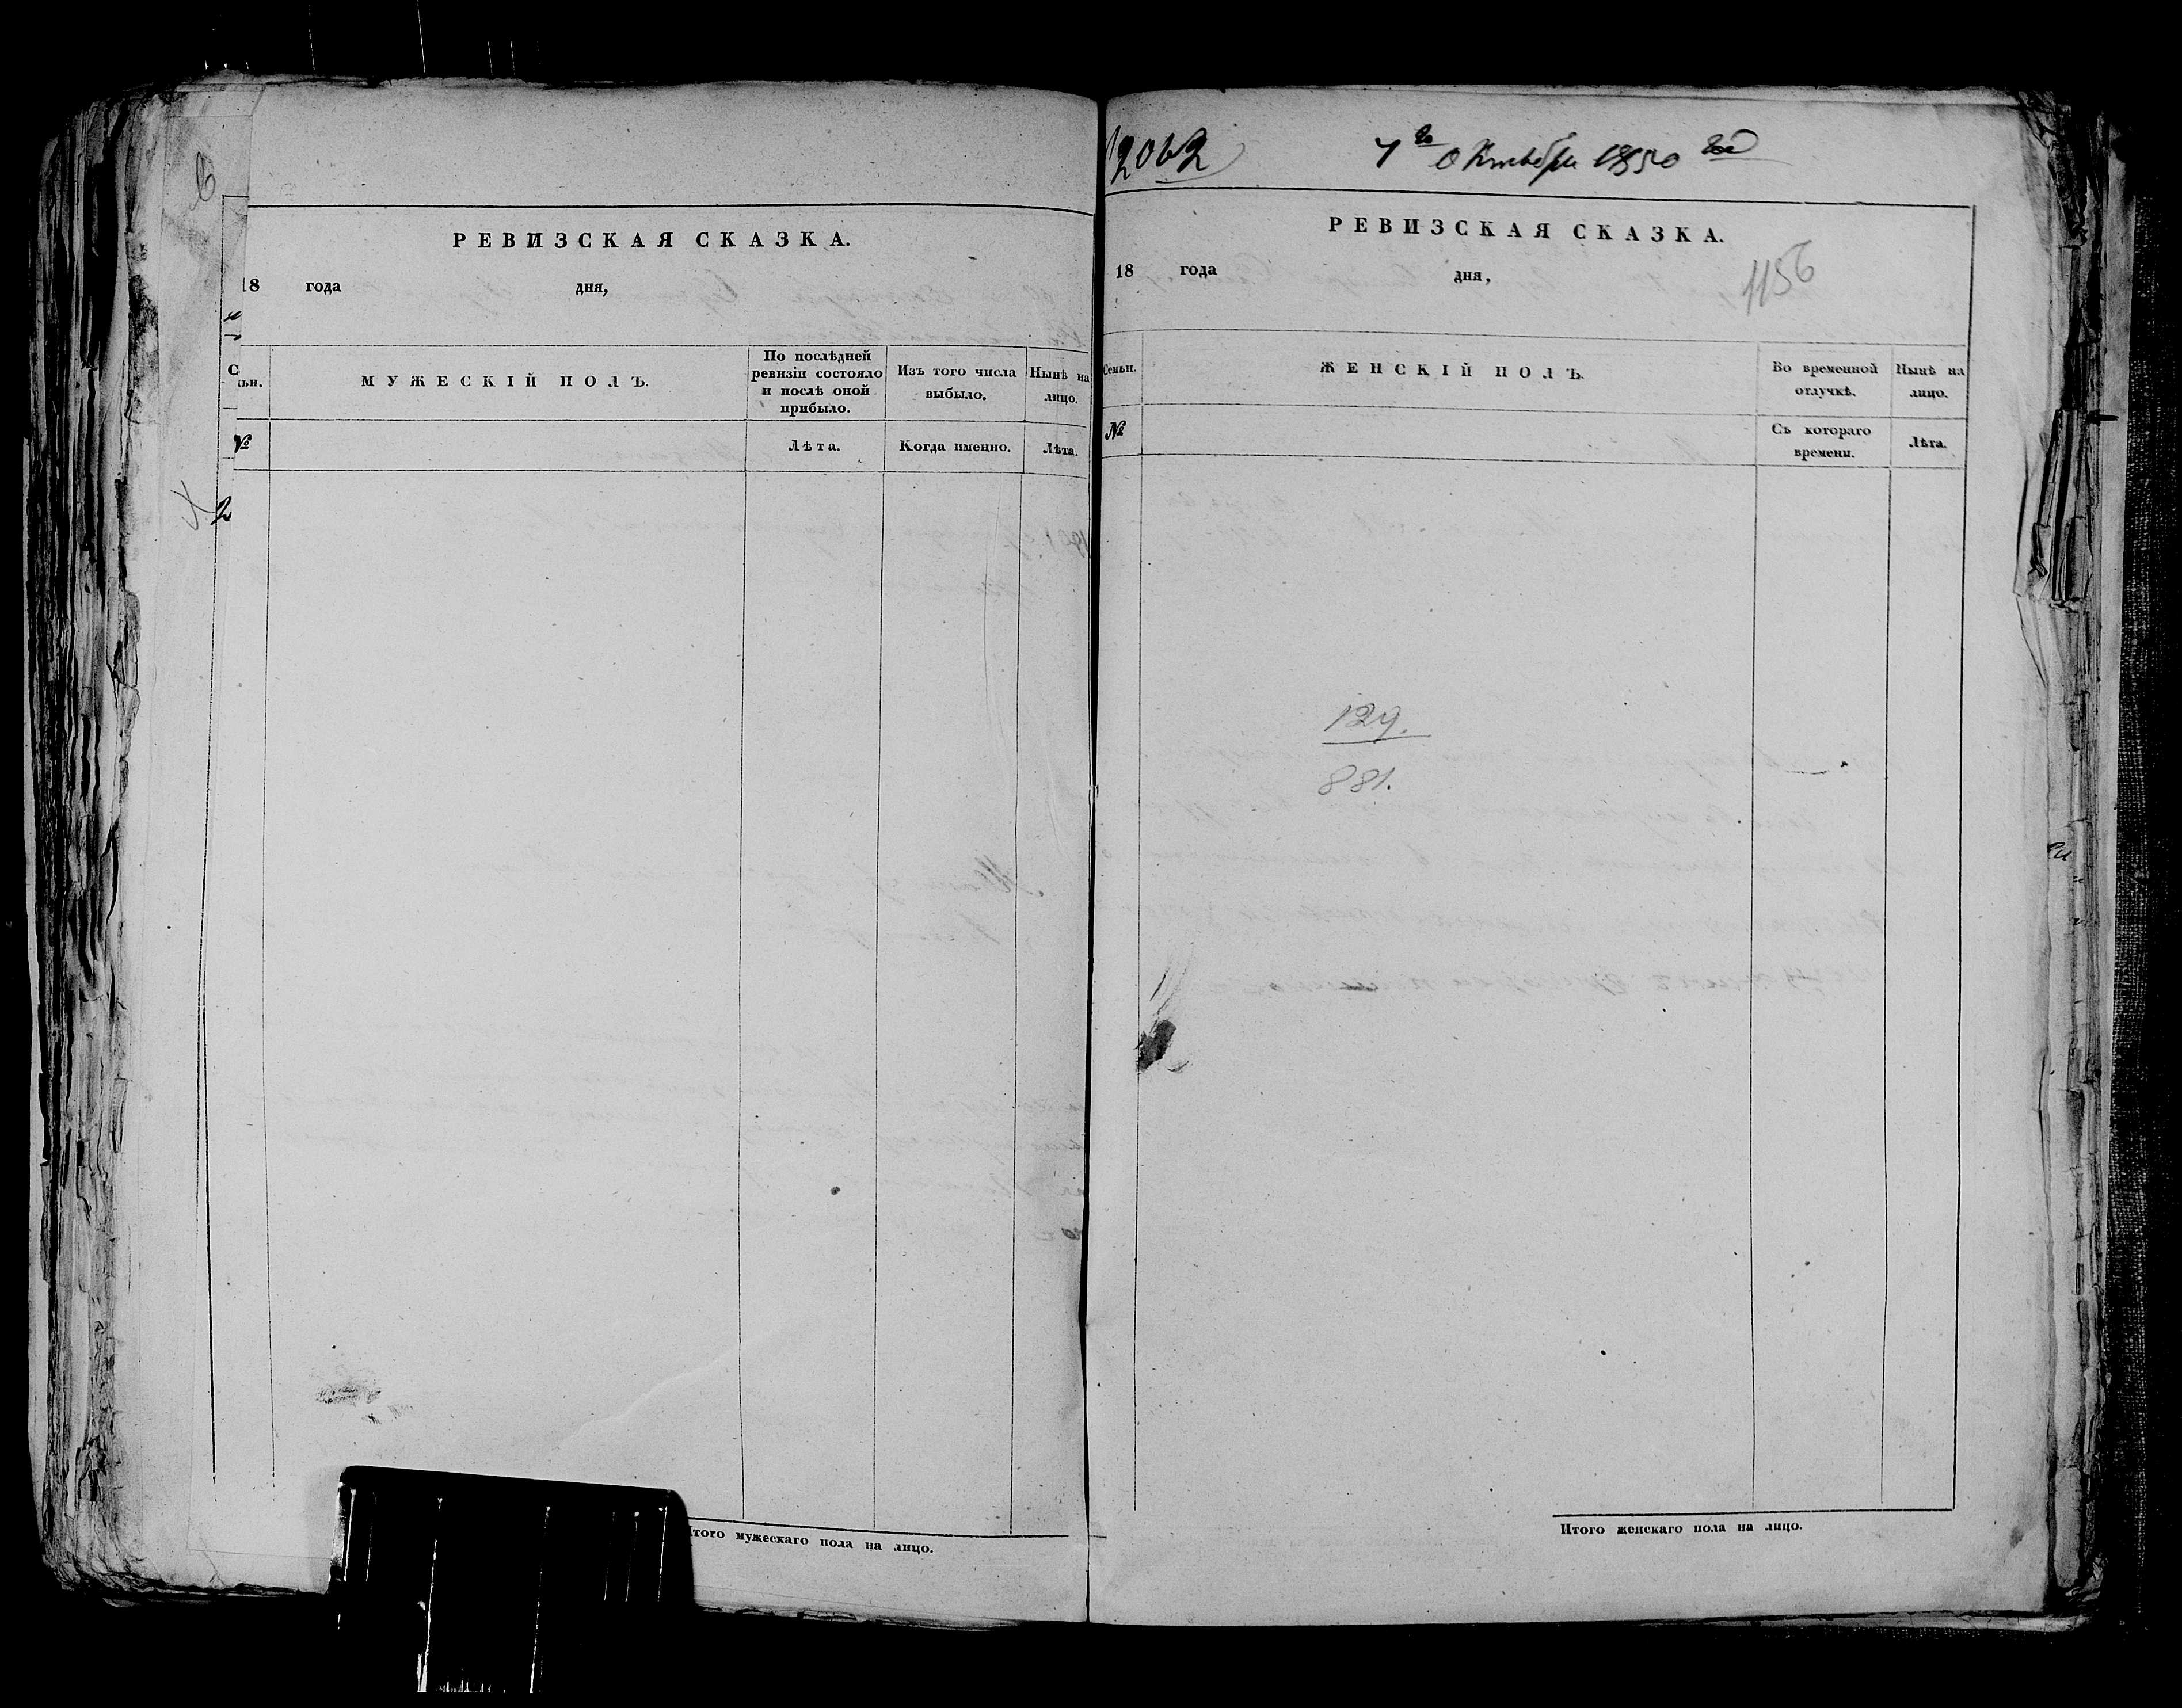 РЕВИЗСКАЯ СКАЗКА.
18 года дня,
ьи.
МУЖЕСКІЙ ПОЛЪ.
По послѣдней ревизіи состояло и послѣ оной прибыло.
Изъ того числа выбыло.
Нынѣ на лицо.
№
Лѣта.
Когда именно.
Лѣта.
2
Итого мужескаго пола на лицо.
12062
7го Октября 1850 года
РЕВИЗСКАЯ СКАЗКА.
18 года дня,
1156
Семьи.
ЖЕНСКІЙ ПОЛЪ.
Во временной отлучкѣ.
Нынѣ на лицо.
№
Съ котораго времени.
Лѣта.
129.
881.
Итого женскаго пола на лицо.